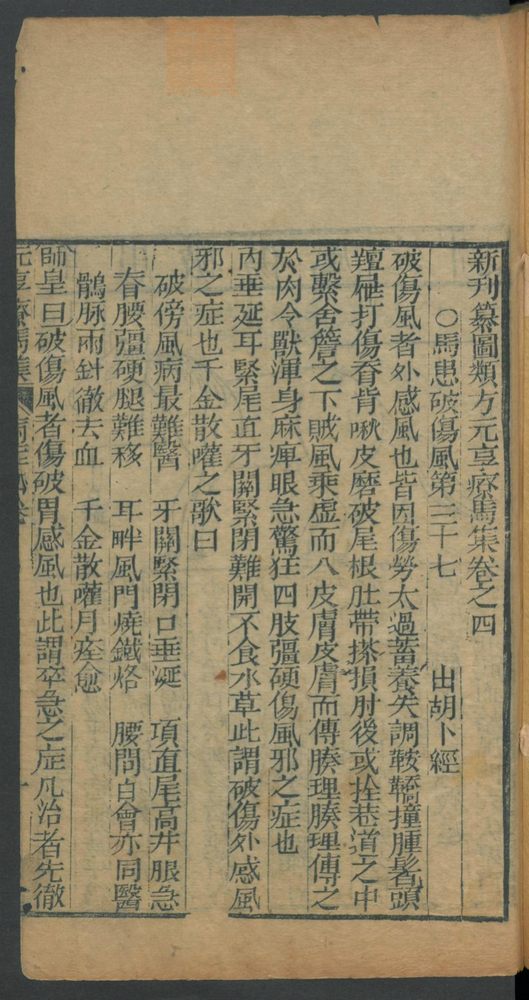 新刊纂圖類方元亨療馬集卷之四
〇馬患破傷風第三十七 出胡卜經
破傷風者外感風也皆因傷勞太過蓄養失調鞍鞽撞腫鬐頭
羶屜打傷脊背啾皮磨破尾根肚帶搽損肘後或拴巷道之中
或繫舍簷之下賊風乘虛而入皮膚皮膚而傳腠理腠理傳之
於肉令獸渾身麻痺眼急驚狂四肢彊硬傷風邪之症也
內垂延耳緊尾直牙關緊閉難開不食水草此謂破傷外感風
邪之症也千金散嚾之歌曰
破傍風病最難醫 牙關緊閉口垂涎 項直尾高并眼急
脊腰彊硬腿難移 耳畔風門燒鐵烙 腰間百會亦同醫
鶻脉兩針徹去血 千金散嚾月痊愈
師皇曰破傷風者傷破胃感風也此謂卒急之症凡治者先徹
元亨療馬集 卷 一